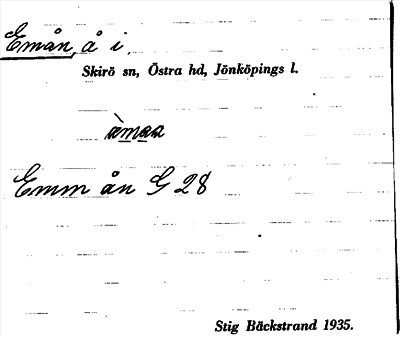 Emån, å i
Skirö sn, Östra hd, Jönköpings l.
Emm ån G 28
Stig Bäckstrand 1935.